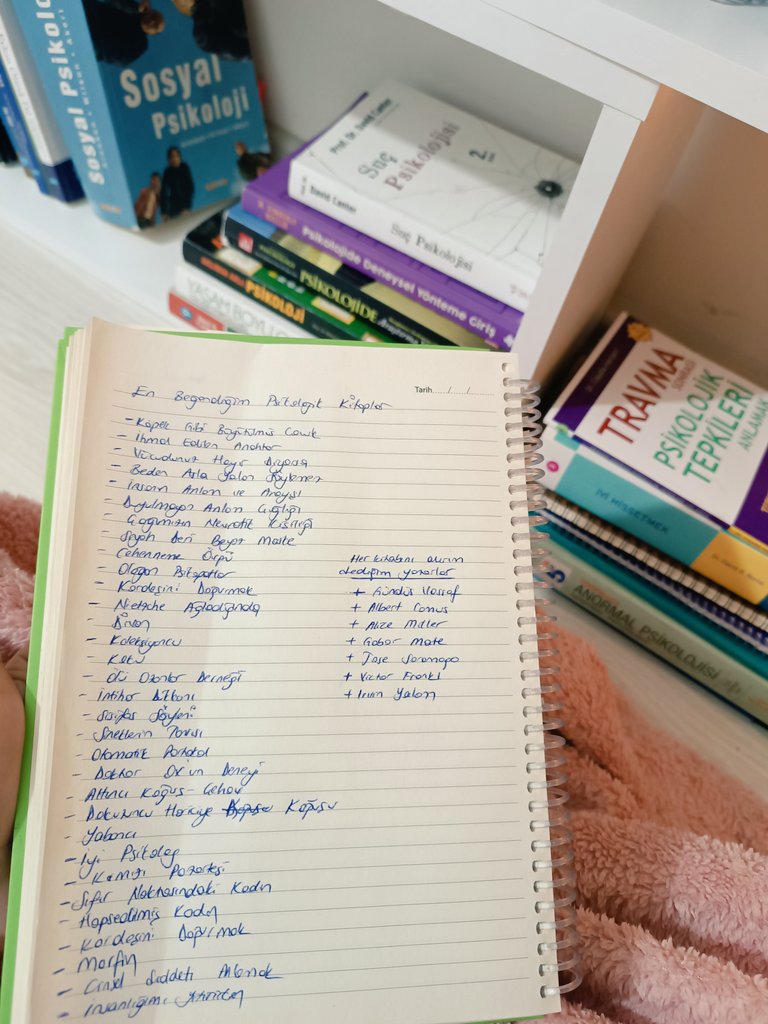 Sosyal Psikolo
Sosyal
Psikoloji
Prof. Dr. David Canter
Suç
Psikolojisi
2.
David Canter
Suç Psikolojisi
Psikolojide Deneysel Yönteme Giriş
PSİKOLOJİDE
Araştırma
PSİKOLOJİ
YAŞAM BOYU
TRAVMA
SONRASI
PSİKOLOJİK
TEPKİLERİ
ANLAMAK
İYİ HİSSETMEK
ANORMAL PSİKOLOJİSİ
Tarih...../...../.....
En Beğendiğim Psikolojik Kitaplar
- Köpek Gibi Büyütülmüş Çocuk
- İhmal Edilen Anahtar
- Vücudunuz Hayır Diyorsa
- Beden Asla Yalan Söylemez
- İnsanın Anlam ve Arayışı
- Duyulmayan Anlam Çığlığı
- Çağımızın Nevrotik Kişiliği
- Siyah Deri Beyaz Maske
- Cehenneme Övgü
- Olağan Psikopatlar
- Kardeşini Doğurmak
- Nietzche Ağladığında
- Divan
- Koleksiyoncu
- Kötü
- Ölü Ozanlar Derneği
- İntihar Dükkanı
- Sisifos Söyleni
- Sineklerin Tanrısı
- Otomatik Portakal
- Doktor Ox'un Deneyi
- Altıncı Koğuş - Çehov
- Dokuzuncu Hariciye Koğuşu
- Yabancı
- İyi Psikolog
- Kırmızı Pazartesi
- Sıfır Noktasındaki Kadın
- Hapsedilmiş Kadın
- Kardeşini Doğurmak
- Morfin
- Cinsel Şiddeti Anlamak
- İnsanlığımı Yitirirken
Her kitabını alırım
dediğim yazarlar
+ Gündüz Vassaf
+ Albert Camus
+ Alice Miller
+ Gabor Mate
+ Jose Saramago
+ Victor Frankl
+ Irvın Yalom